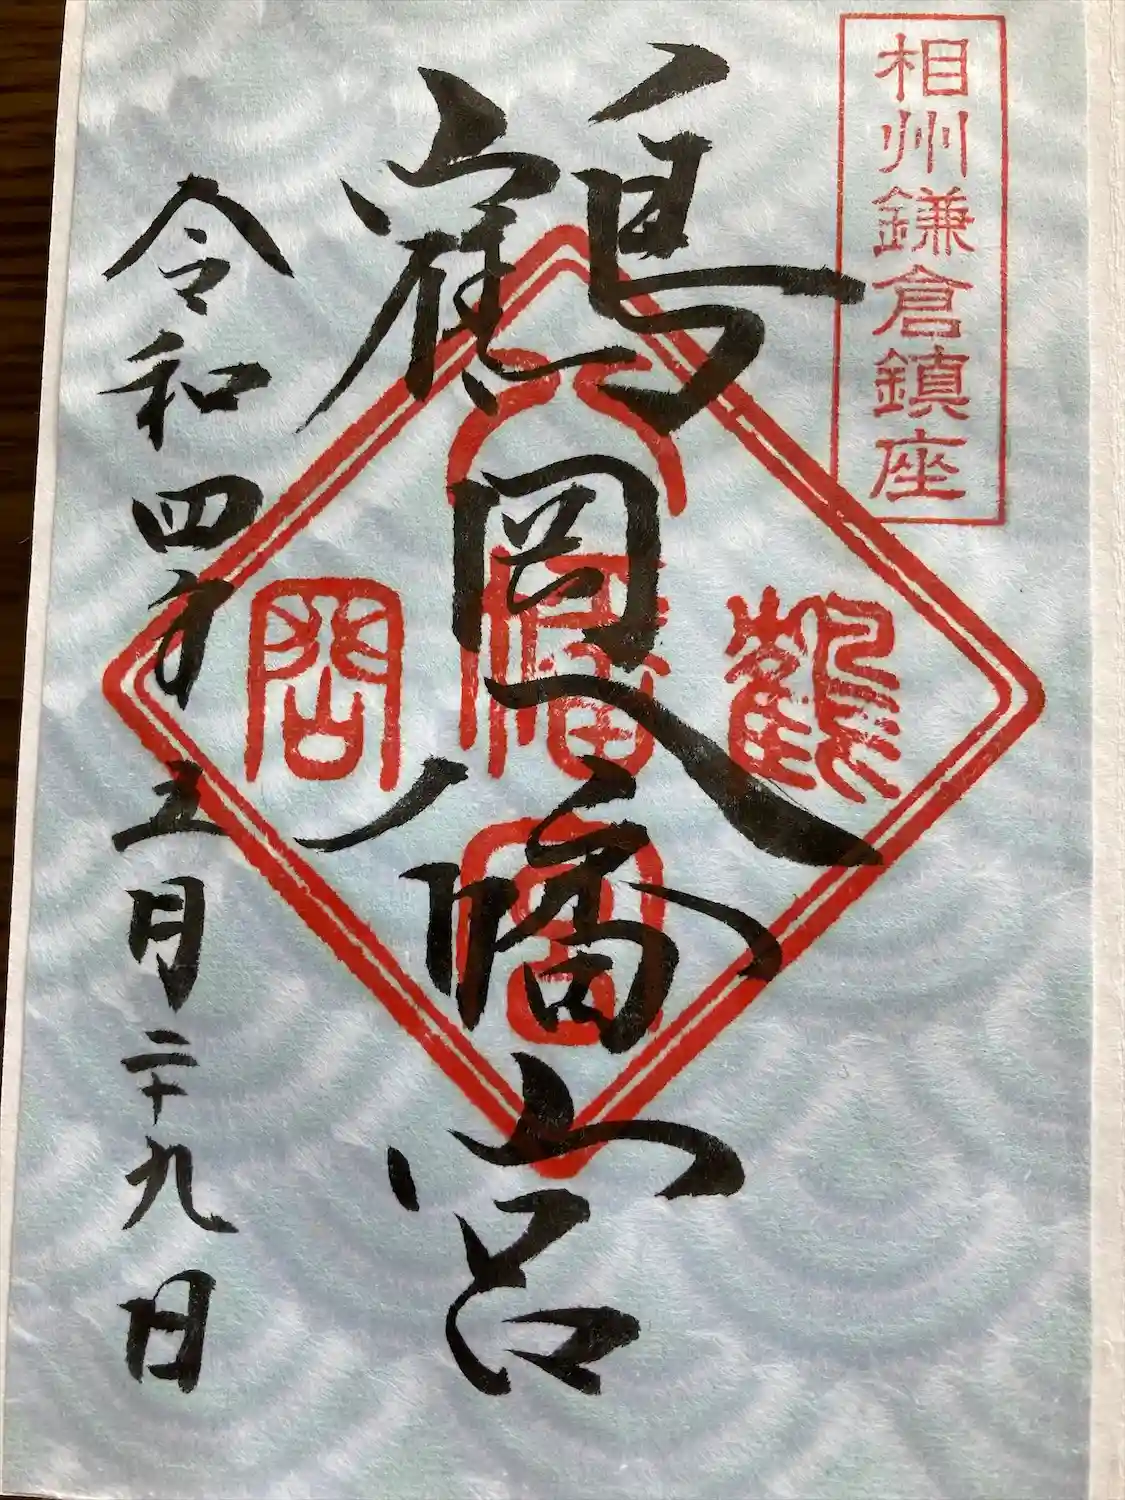 相州鎌倉鎮座
鶴岡八幡宮
鶴岡八幡宮
令和四年五月二十九日